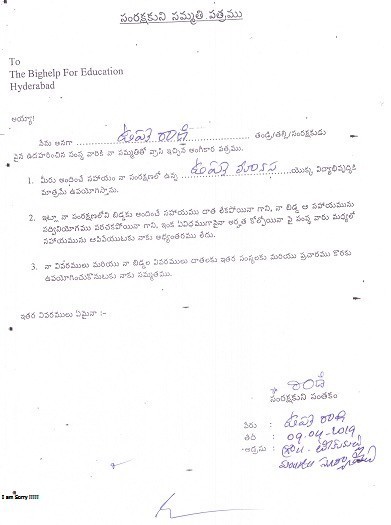 సంరక్షకుని సమ్మతి పత్రము
To
The Bighelp For Education
Hyderabad
అయ్యా!
నేను అనగా తండ్రి/తల్లి/సంరక్షకుడు
పైన ఉదహరించిన సంస్థ వారికి నా సమ్మతితో వ్రాసి ఇచ్చిన అంగీకార పత్రము.
1. మీరు అందించే సహాయం నా సంరక్షణలో ఉన్న యొక్క విద్యాభివృద్ధికి
మాత్రమే ఉపయోగిస్తాను.
2. ఇట్లా నా సంరక్షణలోని బిడ్డకు అందించే సహాయము దాత లేకపోయినా గాని, నా బిడ్డ ఆ సహాయమును
సద్వినియోగము పరచకపోయినా గాని, ఇంక ఏవిధముగానైనా అర్హత కోల్పోయినా పై సంస్థ వారు మధ్యలో
సహాయమును ఆపివేయుటకు నాకు అభ్యంతరము లేదు.
3. నా వివరములు మరియు నా బిడ్డల వివరములు దాతలకు ఇతర సంస్థలకు మరియు ప్రచారము కొరకు
ఉపయోగించుకొనుటకు నాకు సమ్మతము.
ఇతర వివరములు ఏమైనా :-
సంరక్షకుని సంతకం
పేరు :
తేది : 09.04-2019
అడ్రసు :
I am Sorry !!!!!